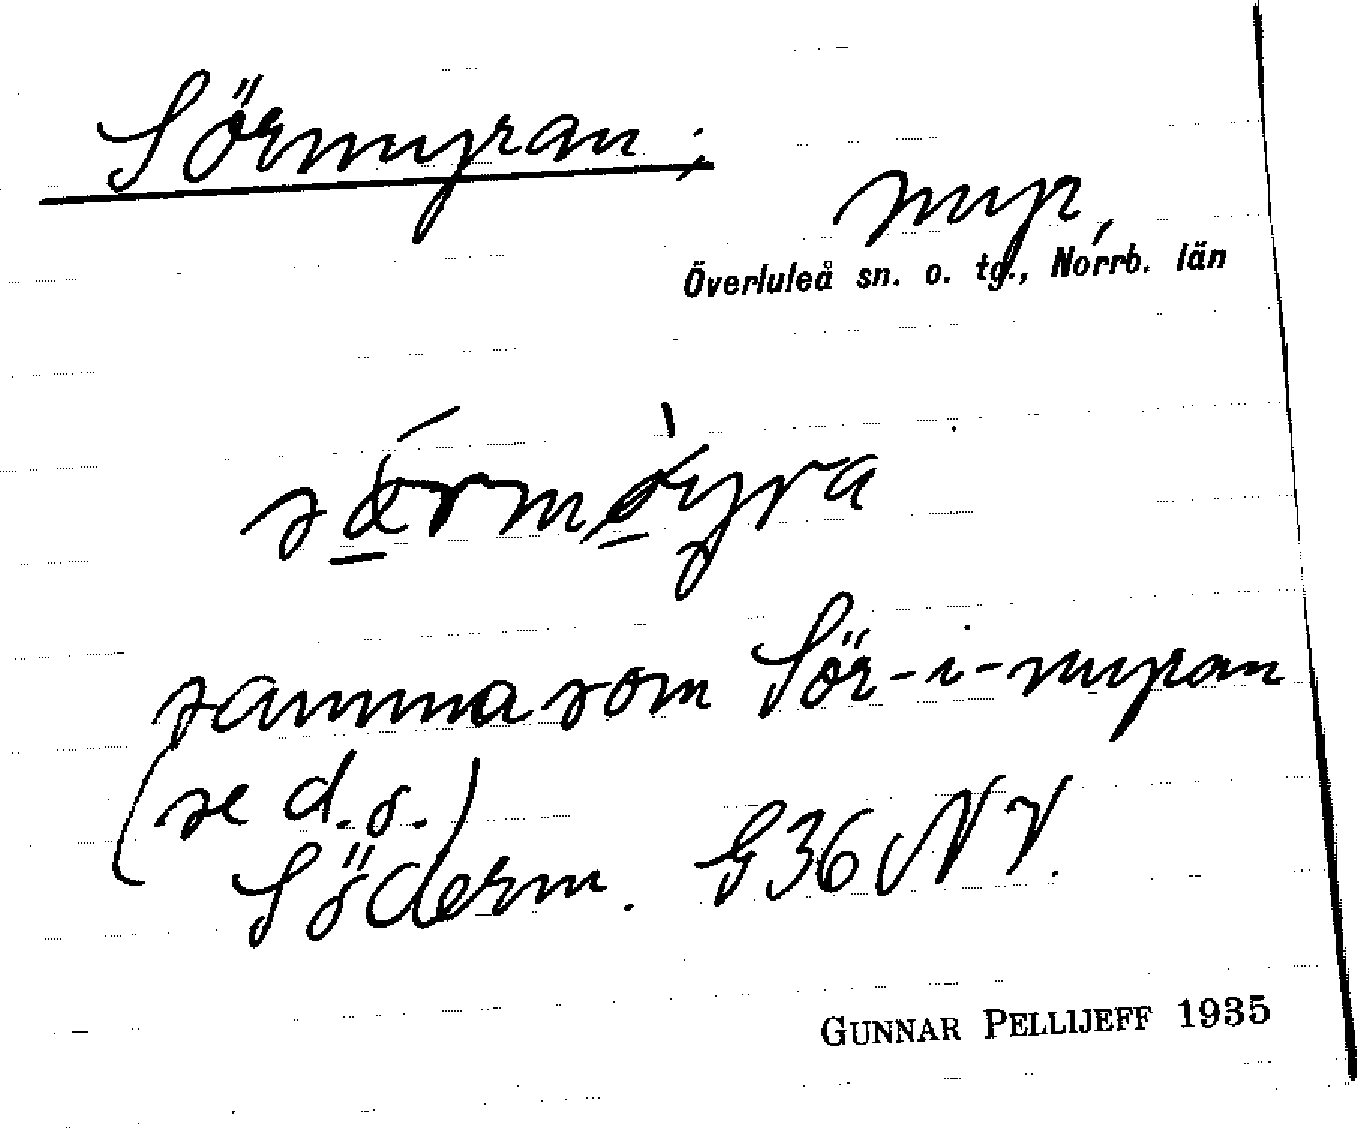 Sörmyran;
myr,
Överluleå sn. o. tg., Norrb. län
samma som Sör-i-myran
(se d.o.)
Söderm. G36 NV.
GUNNAR PELLIJEFF 1935